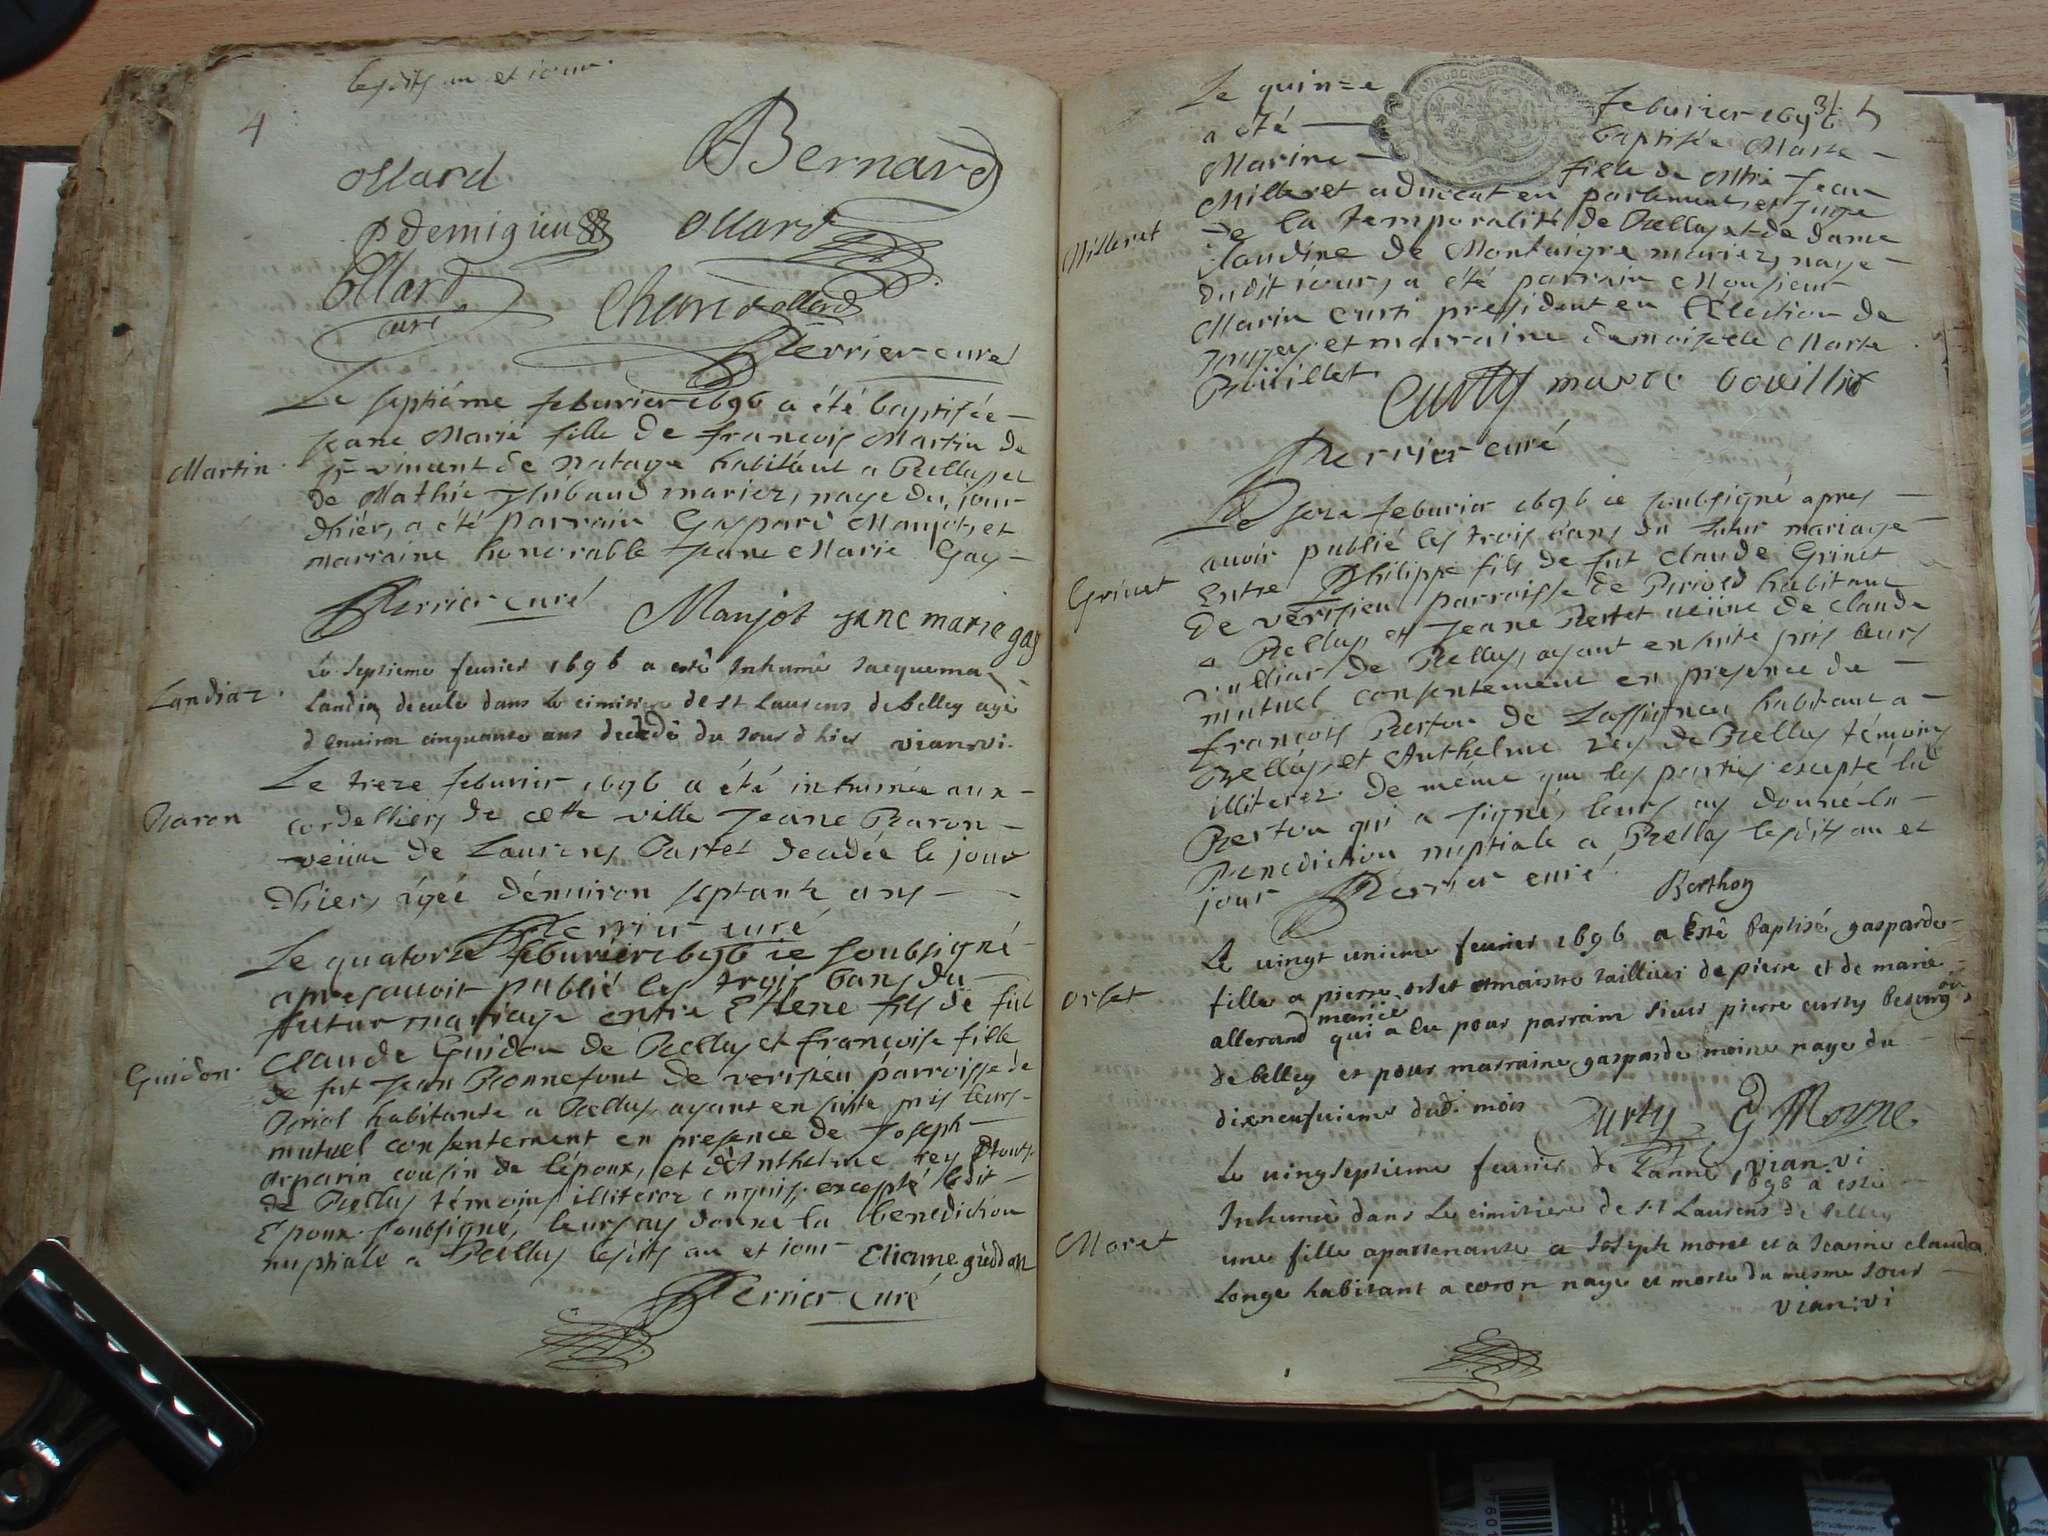 lesdits an et iour.
4
ollard
Bernard
Pdemigieu
ollard
Ollard
curé
Charcot
ollard
Perrier curé
Le septiéme feburier 1696 a été baptisée
Jeane Marie fille de francois Martin de
Martin
St vincent de habitant a Belley et
de Mathie Thibaud mariez, naye du jour
dhier, a été parrain Gaspard Manjot, et
marraine honorable Jeane Marie Gay
Perrier curé
Manjot
jane marie gay
Le septieme feurier 1696 a esté Inhumé Jacquema
Landiaz
Landiaz decede dans le cimitiere de st Laurens de belley agé
d enuiron cinquante ans decedé du Jour d hier vian: vi.
Le treze feburier 1696 a été inhumée aux
Baron
cordelliers de cette ville Jeane Baron
veüue de Laurens Partet decedée le jour
dhier, agée dénuiron septante ans
Perrier curé
Le quatorze feburier 1696 ie soubsigné
apres auoir publié les trois bans du
futur mariage entre Etiene fils de fut
Guidon
Claude Guidon de Belley et françoise fille
de fut Jean Bonnefont de verisieu parroisse de
Briol habitante a Belley, ayant ensuite pris leurs
mutuel consentement en presence de Joseph
parin cousin de l'époux, et d'Anthelme rey
de Belley témoins illiterez enquis excepté ledit
Epoux soubsigné, leurs ay donné la benediction
nuptiale a Belley lesdits an et iour
Etiane guidon
Perrier curé
Le quinze feburier 1696
a été baptisée Marie
Marine fille de Mtre Jean
Milleret
Milleret aduocat en parlement, et juge
de la temporalité de Belley et de dame
claudine de Montaigre mariez, naye
dudit iour, a été parrain Monsieur
Marin Curti president en l'Election de
et marraine demoiselle Marie
Boüillet
Curty
marie bovillet
Perrier curé
Le seze feburier 1696 ie soubsigné apres
auoir publié les trois bans du futur mariage
Grinet
Entre Philippe fils de fut claude Grinet
De verisieu parroisse de Briord habitant
a Belley, et Jeane Bertet veüue de claude
vulliat de Belley, ayant ensuite pris leurs
mutuel consentement en presence de
françois Berton de Lassignieu habitant a
Belley, et Anthelme rey de Belley témoins
illiterez de même que les parties excepté led
Berton qui a signé, leurs ay donné la
Benediction nuptiale a Belley lesdits an et
jour
Perrier curé
Berthon
Le vingt unieme feurier 1696 a Esté baptisé gasparde
orset
fille a pierre orset maistre taillieur de pierre et de marie
allerand mariés qui a Eu pour parrain sieur pierre curty bourgois
de belley et pour marraine gasparde moine naye du
dixneufuieme dud. mois
Curty
G Moyne
vian: vi
Le vingseptieme feurier de Lanné 1696 a esté
Inhumé dans Le cimitiere de st Laurens de belley
Moret
une fille apartenante a Joseph moret et a Jeanne clauda
Longe habitant a coron naye et morte du mesme Jour
vian: vi